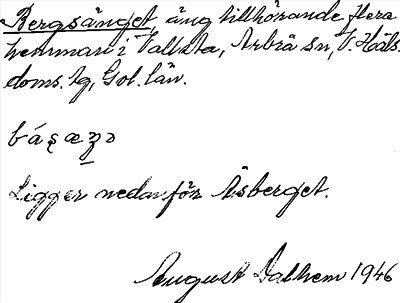 Bergsänget, äng tillhörande flera
hemman i Vallsta, Arbrå sn, V. Häls.
doms. tg, Gol. län.
Ligger nedanför Åsberget.
August Dalhem 1946